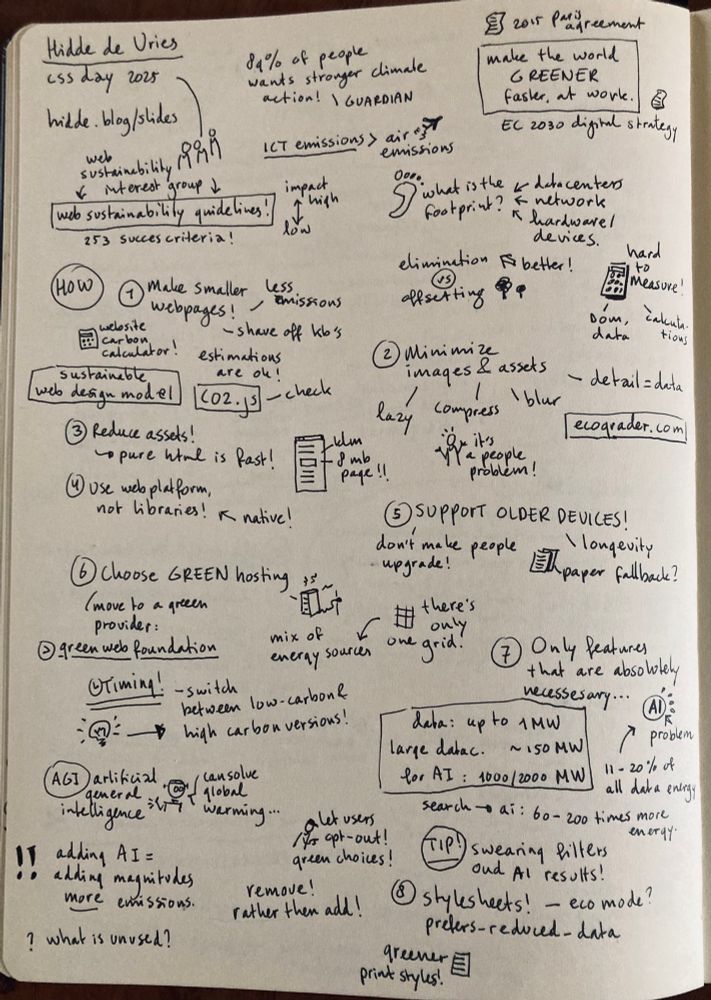 Hidde de Vries
css day 2025
hidde.blog/slides
web
sustainability
interest group
web sustainability guidelines!
253 succes criteria!
impact
high
low
89% of people
wants stronger climate
action! \ GUARDIAN
ICT emissions > air
emissions
2015 Paris
agreement
make the world
GREENER
faster, at work.
EC 2030 digital strategy
what is the
footprint?
datacenters
network
hardware/
devices.
elimination
better!
vs
offsetting
hard
to
measure!
DOM,
data
calcula-
tions
HOW
1 Make smaller
webpages!
less
emissions
- shave off kb's
website
carbon
calculator!
estimations
are ok!
sustainable
web design model
CO2.js - check
2 Minimize
images & assets
- detail = data
lazy
compress
blur
ecograder.com
it's
a people
problem!
3 Reduce assets!
pure html is fast!
8 mb
page!!
4 Use web platform,
not libraries!
native!
5 SUPPORT OLDER DEVICES!
don't make people
upgrade!
longevity
paper fallback?
6 Choose GREEN hosting
/move to a green
provider:
> green web foundation
mix of
energy sources
there's
only
one grid!
Timing!
- switch
between low-carbon &
high carbon versions!
7 Only features
that are absolutely
necessesary...
AI
problem
11-20% of
all data energy
data: up to 1 MW
large datac. ~150 MW
for AI: 1000/2000 MW
search → ai: 60-200 times more
energy.
AGI artificial
general
intelligence
can solve
global
warming...
let users
opt-out!
green choices!
TIP! swearing filters
oud AI results!
!! adding AI =
adding magnitudes
more emissions.
remove!
rather then add!
8 stylesheets! - eco mode?
prefers-reduced-data
? what is unused?
greener
print styles!